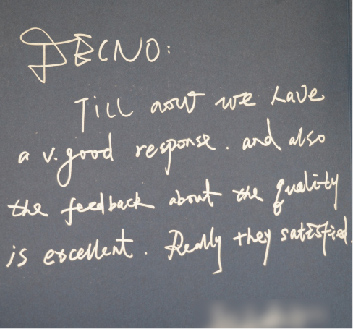 TECNO:
Till now we have
a v. good response. and also
the feedback about the quality
is excellent. Really they satisfied.